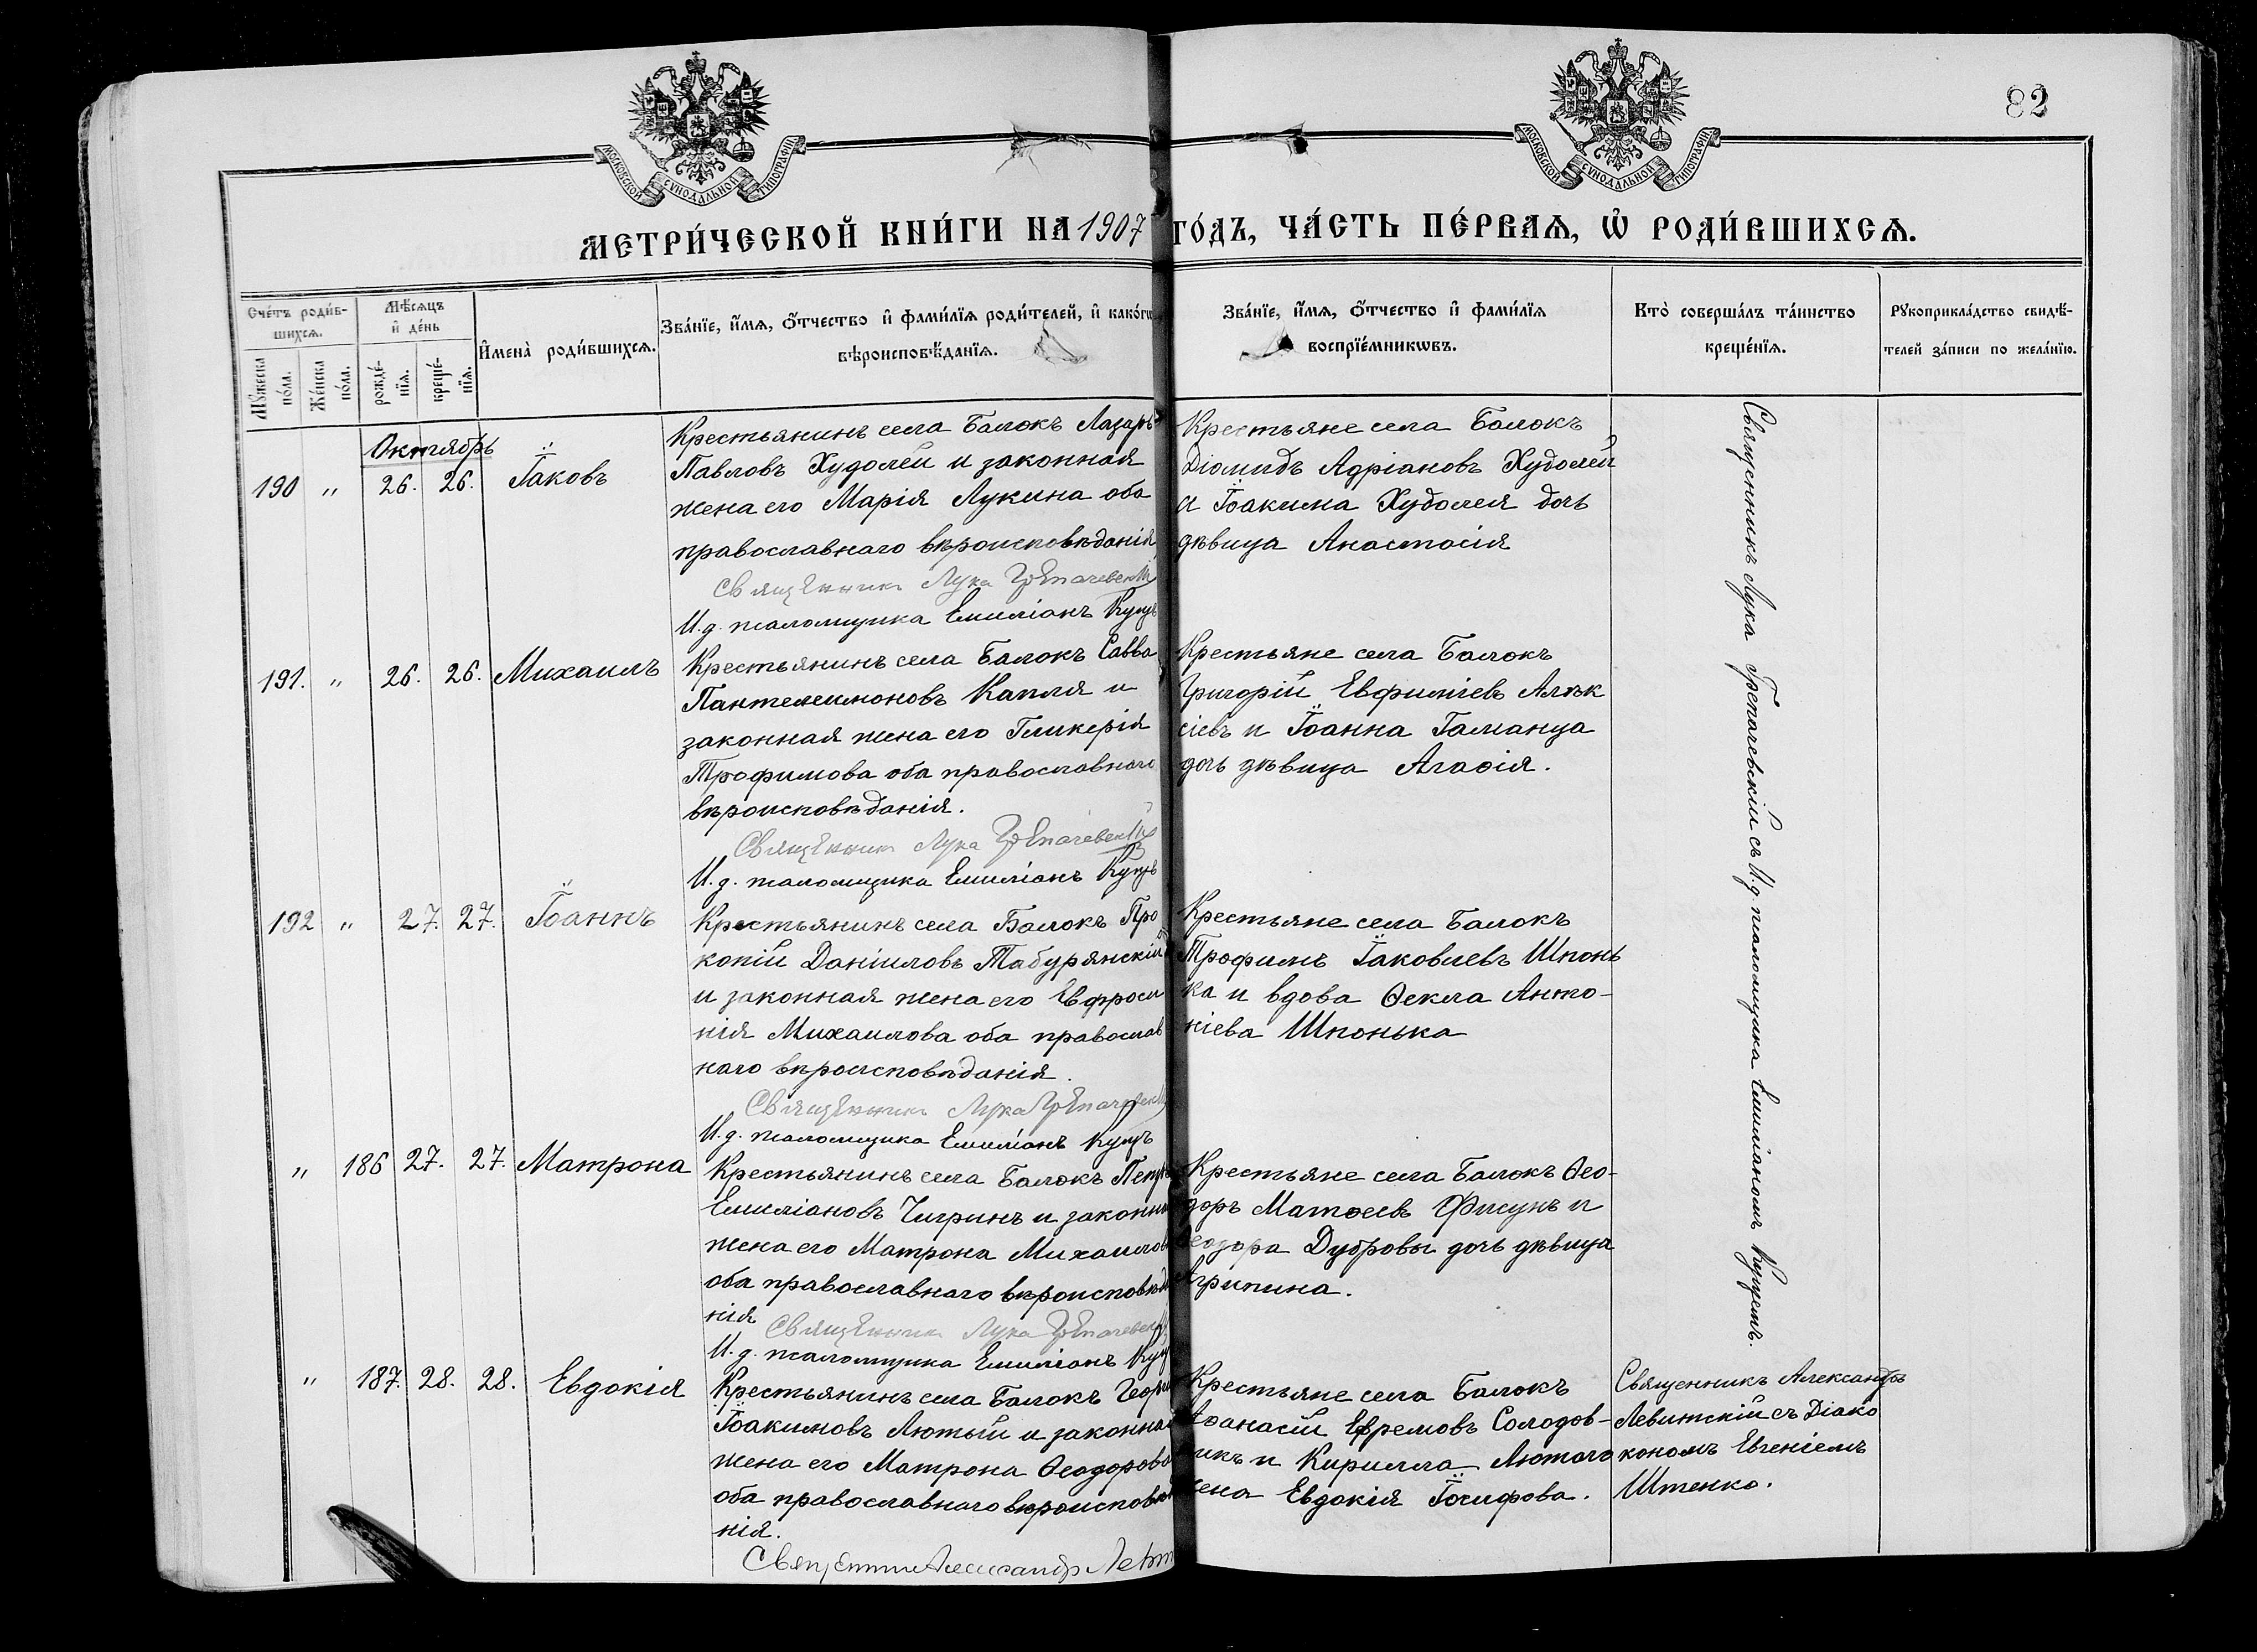 82
МОСКОВСКОЙ СУНОДАЛЬНОЙ ТИПОГРАФІИ
МОСКОВСКОЙ СУНОДАЛЬНОЙ ТИПОГРАФІИ
МЕТРИ́ЧЕСКОЙ КНИ́ГИ НА 1907 ГО́ДЪ, ЧА́СТЬ ПЕ́РВАѦ, Ѡ҆ РОДИ́ВШИХСѦ.
Сче́тъ роди́в-
шихсѧ.
Мꙋ́жеска по́ла.
Же́нска по́ла.
Мѣ́сѧцъ
и҆ де́нь
рожде́-
нїѧ.
креще́-
нїѧ.
И҆мена̀ роди́вшихсѧ.
Зва́нїе, и҆́мѧ, ѻ҆́тчество и҆ фами́лїѧ роди́телей, и҆ како́гѡ
вѣроисповѣ́данїѧ.
Зва́нїе, и҆́мѧ, ѻ҆́тчество и҆ фами́лїѧ
воспрїе́мникѡвъ.
Кто̀ соверша́лъ та́инство
креще́нїѧ.
Рꙋкоприкла́дство свидѣ́-
телей за́писи по жела́нїю.
Октябрь
190 " 26. 26. Іаковъ
Крестьянинъ села Балокъ Лазарь
Павловъ Худолей и законная
жена его Марія Лукина оба
православнаго вѣроисповѣданія
Священникъ Лука Грепачевскій
И.д. псаломщика Емиліанъ Куцъ
Крестьяне села Балокъ
Діомидъ Адріановъ Худолей
и Іоакима Худолея дочь
дѣвица Анастасія
191. " 26. 26. Михаилъ
Крестьянинъ села Балокъ Савва
Пантелеимоновъ Капля и
законная жена его Гликерія
Трофимова оба православнаго
вѣроисповѣданія.
Священникъ Лука Грепачевскій
И.д. псаломщика Емиліанъ Куцъ
Крестьяне села Балокъ
Григорій Евфиміевъ Алѣк
сіевъ и Іоанна Гаманца
дочь дѣвица Агаѳія.
192 " 27. 27. Іоаннъ
Крестьянинъ села Балокъ Про
копій Даніиловъ Табурянскій
и законная жена его Евфроси
нія Михаилова оба православ
наго вѣроисповѣданія.
Священникъ Лука Грепачевскій
И.д. псаломщика Емиліанъ Куцъ
Крестьяне села Балокъ
Трофимъ Іаковлевъ Шпонь
ка и вдова Ѳекла Анто-
ніева Шпонька
" 186 27. 27. Матрона
Крестьянинъ села Балокъ Петръ
Емиліановъ Чигринъ и законн
жена его Матрона Михаилов
оба православнаго вѣроисповѣда
нія
Священникъ Лука Грепачевск
И.д. псаломщика Емиліанъ Куц
Крестьяне села Балокъ Ѳео-
доръ Матѳеевъ Фисунъ и
Ѳеодора Дубровы дочь дѣвица
Агрипина.
Священникъ Лука Грепачевскій съ И.д. псаломщика Емиліаномъ Куцемъ.
" 187. 28. 28. Евдокія
Крестьянинъ села Балокъ Георг
Іоакимовъ Лютый и законная
жена его Матрона Ѳеодорова
оба православнаго вѣроисповѣда
нія.
Священникъ Александр Левит
Крестьяне села Балокъ
Аѳанасій Ефремовъ Солодов-
никъ и Кирилла Лютого
жена Евдокія Іосифова.
Священникъ Александръ
Левитскій съ Діако
кономъ Евгеніемъ
Штенко.